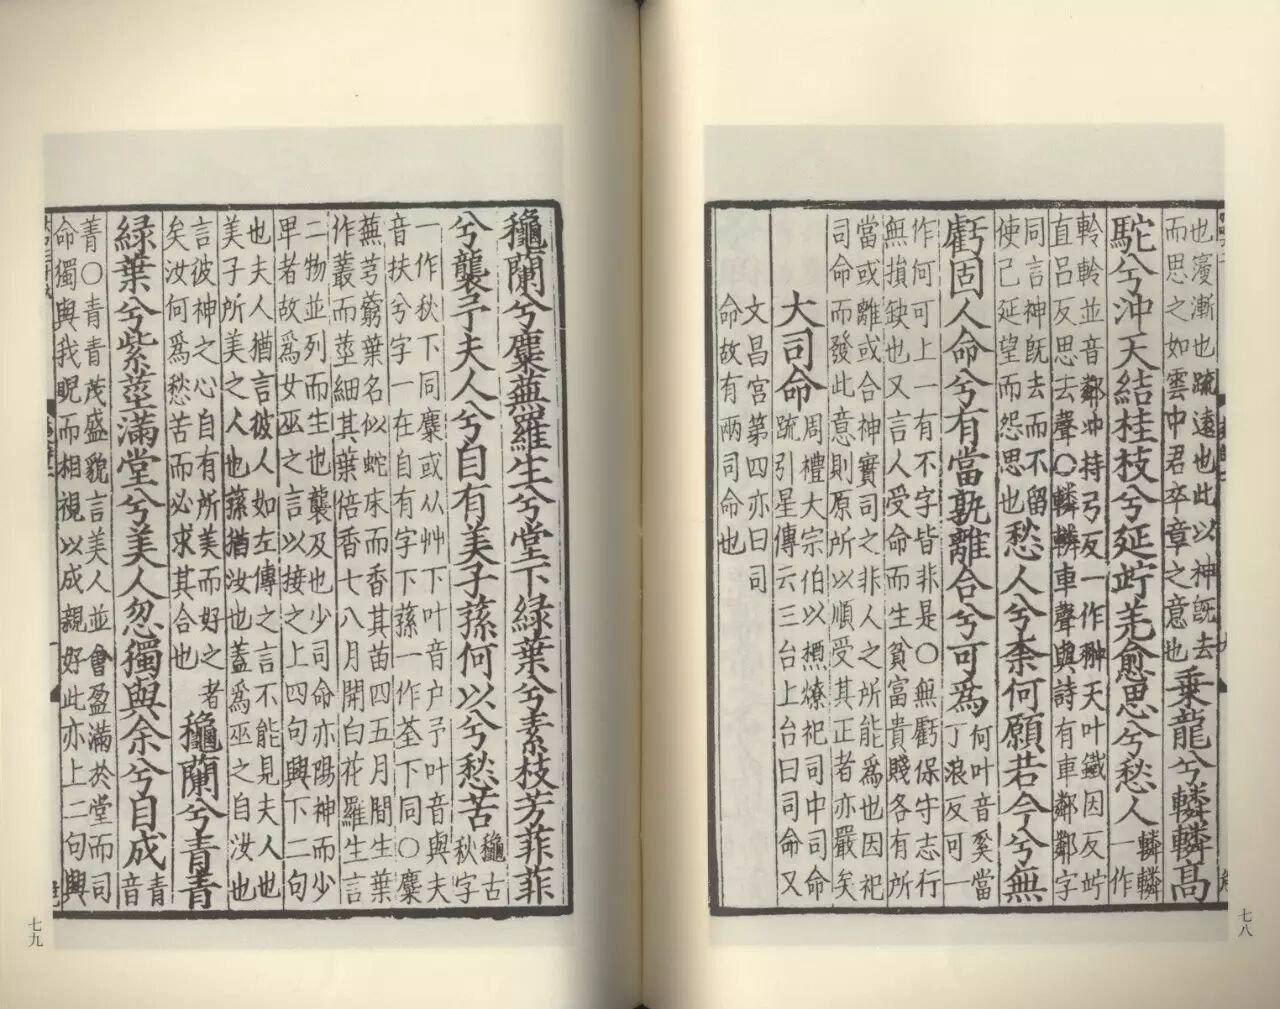 也寖漸也疏遠也此以神旣去
而思之如雲中君卒章之意也
乗龍兮轔轔髙
駝兮沖天結桂枝兮延竚羌愈思兮愁人
轔轔
一作
軨軨並音鄰沖持弓反一作翀天叶鐵因反竚
直呂反思去聲○轔轔車聲與詩有車鄰鄰字
同言神旣去而不留
使己延望而怨思也
愁人兮柰何願若今兮無
虧固人命兮有當孰離合兮可爲
何叶音奚當
丁浪反可一
作何可上一有不字皆非是○無虧保守志行
無損缺也又言人受命而生貧富貴賤各有所
當或離或合神實司之非人之所能爲也因祀
司命而發此意則原所以順受其正者亦嚴矣
大司命
周禮大宗伯以槱燎祀司中司命
疏引星傳云三台上台曰司命又
文昌宮第四亦曰司
命故有兩司命也
七八
穐蘭兮麋蕪羅生兮堂下緑葉兮素枝芳菲菲
兮襲予夫人兮自有美子蓀何以兮愁苦
穐古
秋字
一作秋下同麋或从艸下叶音户予叶音與夫
音扶兮字一在自有字下蓀一作荃下同○麋
蕪芎藭葉名似蛇床而香其苗四五月間生葉
作叢而莖細其葉倍香七八月開白花羅生言
二物並列而生也襲及也少司命亦陽神而少
卑者故爲女巫之言以接之上四句興下二句
也夫人猶言彼人如左傳之言不能見夫人也
美子所美之人也蓀猶汝也蓋爲巫之自汝也
言彼神之心自有所美而好之者
矣汝何爲愁苦而必求其合也
穐蘭兮青青
緑葉兮紫莖滿堂兮美人忽獨與余兮自成
青
音
菁○青青茂盛貌言美人並會盈滿於堂而司
命獨與我睨而相視以成親好此亦上二句興
七九